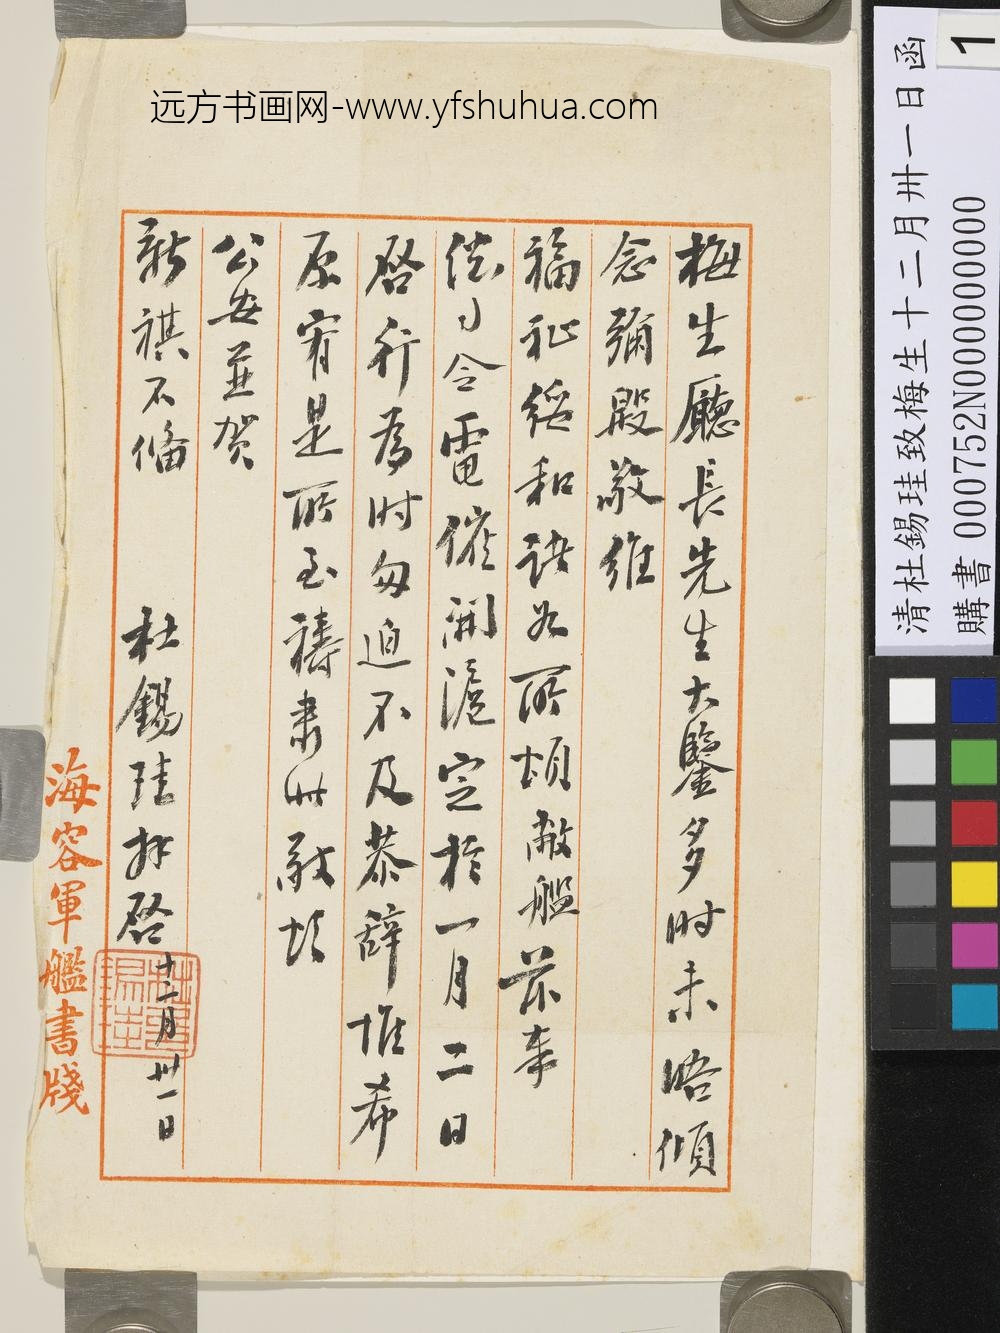 远方书画网-www.yfshuhua.com
梅生廳長先生大鑒多時未晤傾
念彌殷敬維
福祉綏和諸如所頌敝艦茲奉
總司令電催開滬定於一月二日
啓行為時匆迫不及恭辭惟希
原宥是所至禱肅此敬頌
公安並賀
新祺不備 杜錫珪拜啓 十二月卅一日
海容軍艦書牋
清杜錫珪致梅生十二月卅一日函
購書 000752N000000000
1